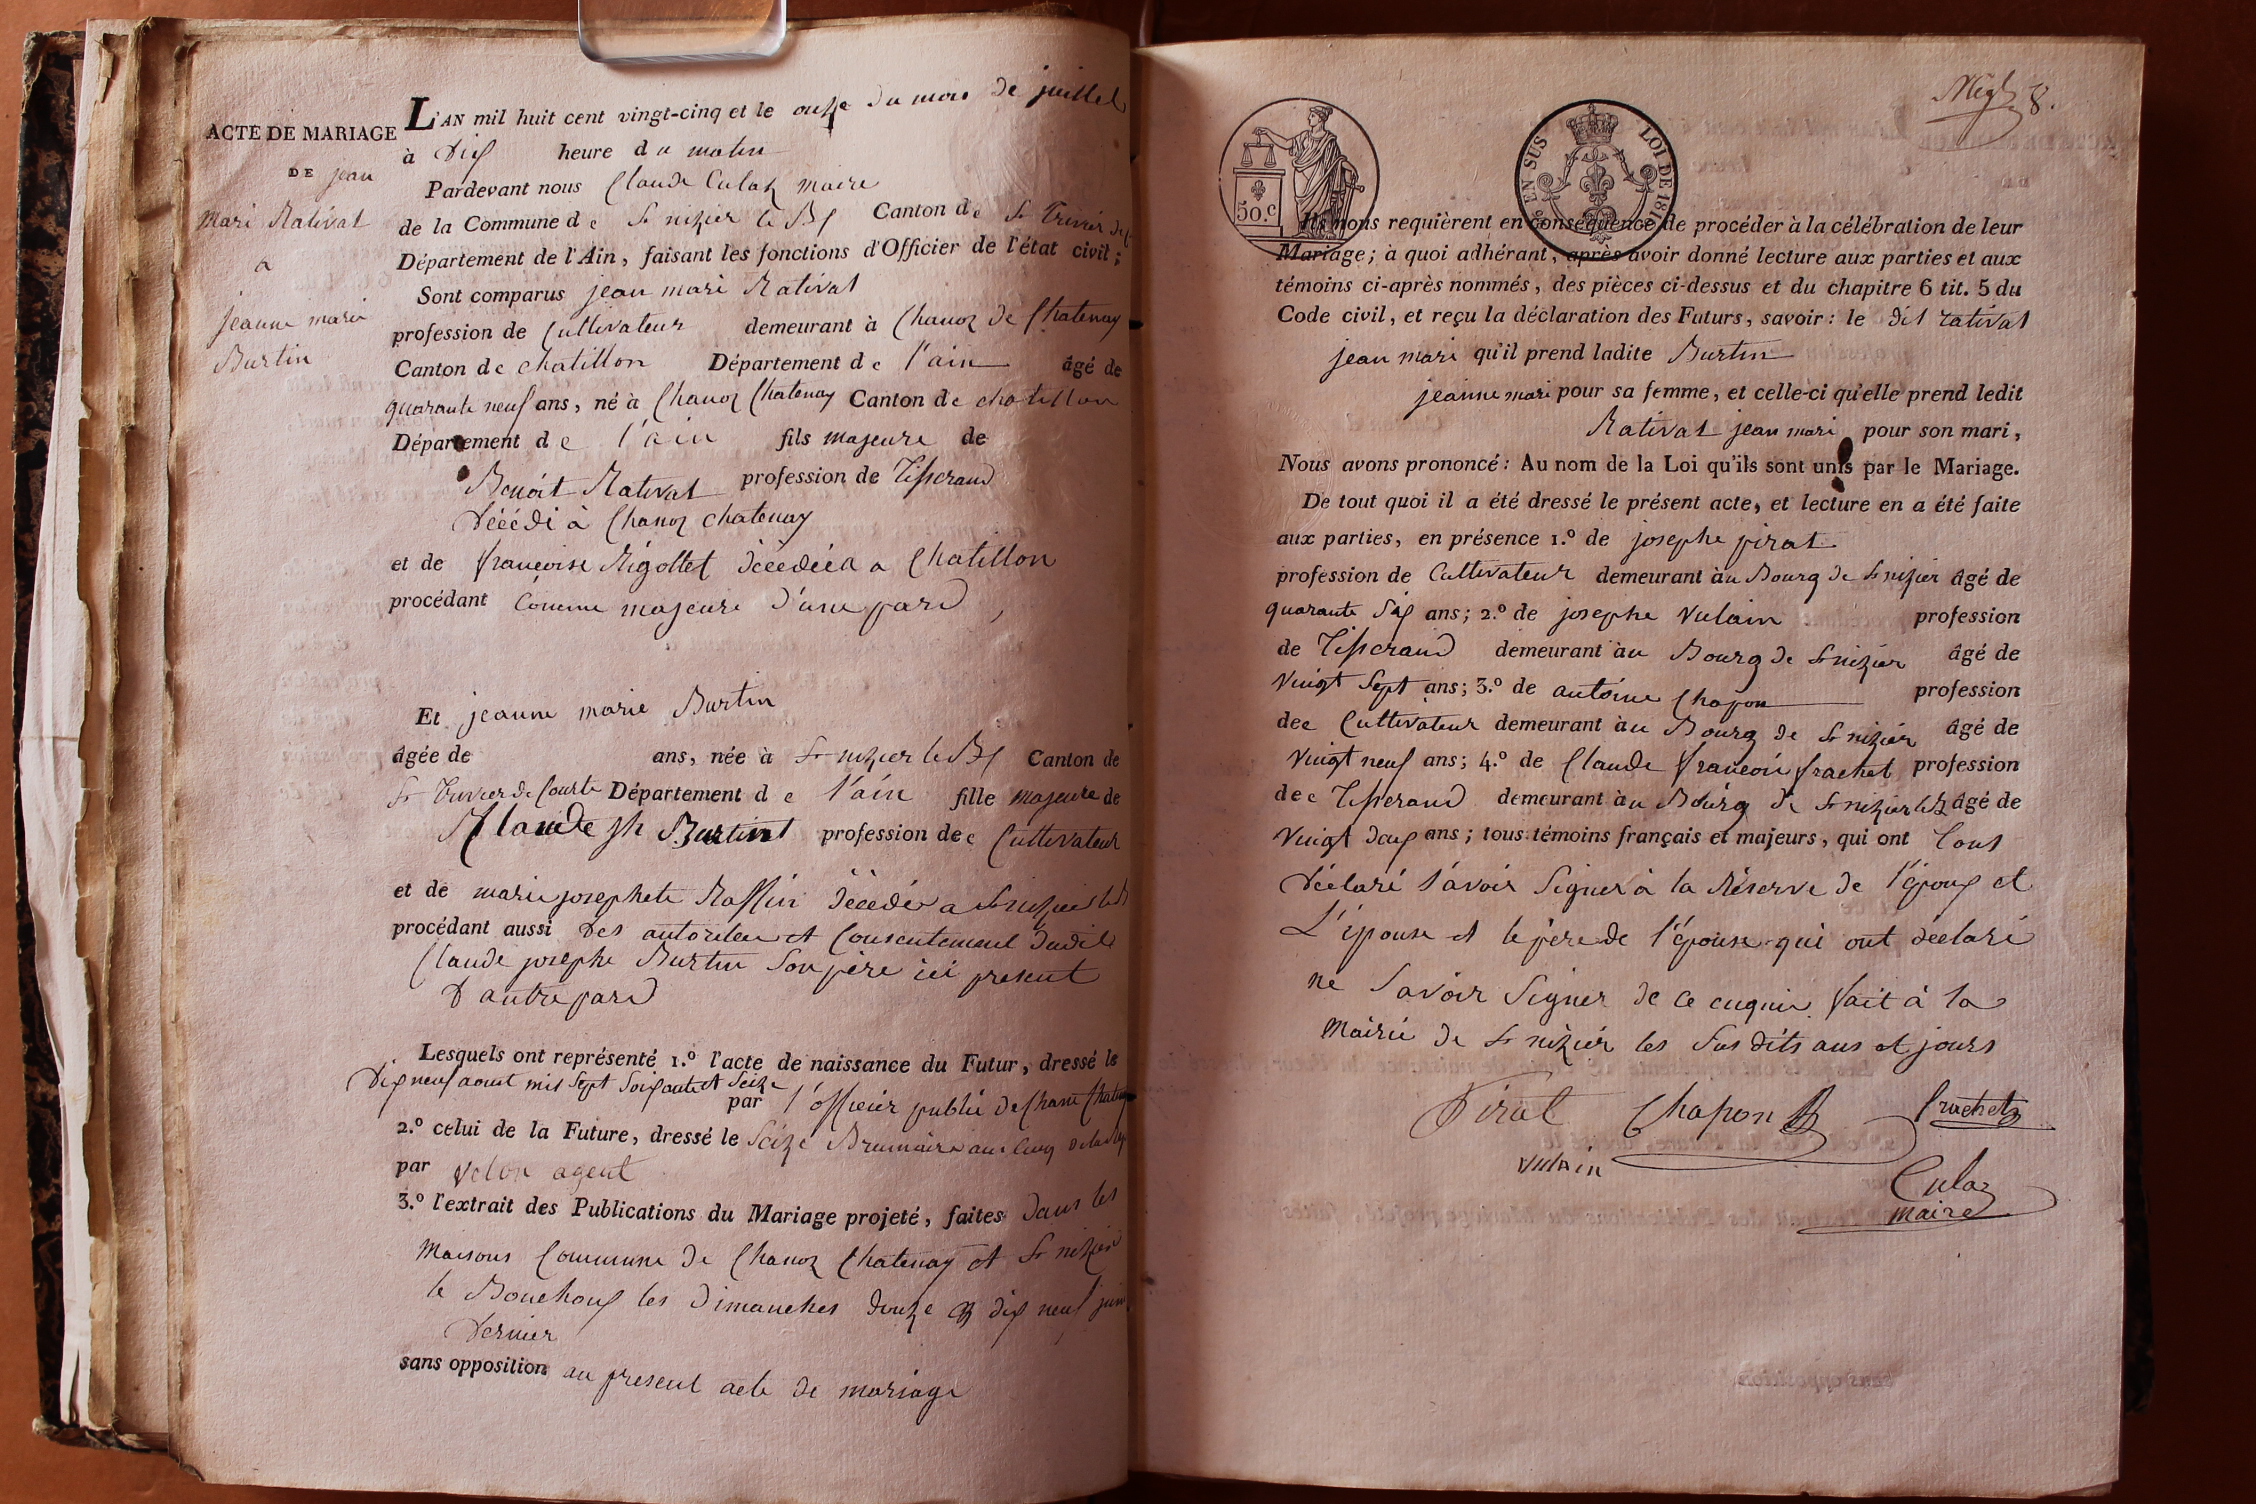 ACTE DE MARIAGE
DE jean
mari Rativat
a
jeanne marie
Burtin
L'AN mil huit cent vingt-cinq et le onze du mois de juillet
à Dix heure du matin
Pardevant nous Claude Culaz maire
de la Commune de St nizier le B Canton de St Trivier de
Département de l'Ain, faisant les fonctions d'Officier de l'état civil;
Sont comparus jean mari Rativat
profession de Cultivateur demeurant à Chanoz de Chatenay
Canton de chatillon Département de l'ain âgé de
quarante neuf ans, né à Chanoz Chatenay Canton de chatillon
Département de l'ain fils majeure de
Benoit Rativat profession de Tisserand
décédé à Chanoz chatenay
et de francoise Rigollet décédéea a Chatillon
procédant comme majeure d'une pard,
Et jeanne marie Burtin
âgée de ans, née à St nizier le B Canton de
St Trivier de Courte Département de l'ain fille majeure de
Claude jh Burtin profession dee Cultivateur
et de marie josephete Raffin décédé a St nizier le B
procédant aussi des autoritee et Consentement dudit
Claude josephe Burtin son père ici présent
d'autre pard
Lesquels ont représenté 1.º l'acte de naissance du Futur, dressé le
dix neuf aoust mil sept soixante et seize
par l'officier public de Chatenay
2.º celui de la Future, dressé le seize Brumaire an cinq
par agent
3.º l'extrait des Publications du Mariage projeté, faites dans les
maisons Commune de Chanoz Chatenay et St nizier
le Bouchoux les dimanches douze et dix neuf juin
dernier
sans opposition au present acte de mariage
8.
50.C
EN SUS
LOI DE 1816
Ils nous requièrent en conséquence de procéder à la célébration de leur
Mariage; à quoi adhérant, après avoir donné lecture aux parties et aux
témoins ci-après nommés, des pièces ci-dessus et du chapitre 6 tit. 5 du
Code civil, et reçu la déclaration des Futurs, savoir: le dit rativat
jean mari qu'il prend ladite Burtin
jeanne mari pour sa femme, et celle-ci qu'elle prend ledit
Rativat jean mari pour son mari,
Nous avons prononcé: Au nom de la Loi qu'ils sont unis par le Mariage.
De tout quoi il a été dressé le présent acte, et lecture en a été faite
aux parties, en présence 1.º de josephe pirat
profession de Cultivateur demeurant àu Bourg de St nizier âgé de
quarante six ans; 2.º de josephe Vulain profession
de Tisserand demeurant àu Bourg de St nizier âgé de
vingt sept ans; 3.º de antoine Chapon profession
dee Cultivateur demeurant àu Bourg de St nizier âgé de
vingt neuf ans; 4.º de Claude francois frachet profession
dee Tisserand demeurant àu Bourg de St nizier le B âgé de
vingt deux ans; tous témoins français et majeurs, qui ont tous
déclaré savoir signer à la réserve de l'époux et
L'épouse et le père de l'épouse qui ont déclaré
ne savoir signer de ce enquis fait à la
mairie de St nizier les sus dits ans et jours
Pirat Chapon frachet
vulain
Culaz
maire